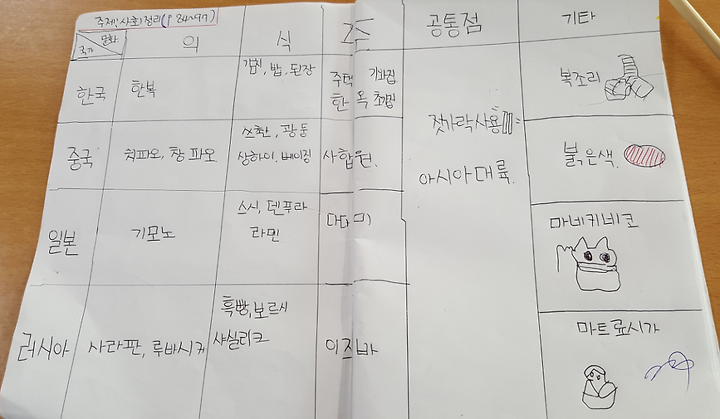 주제: 사회정리 (p 84~97)
문화
국가
의 식 주 공통점 기타
한국 한복 김치, 밥, 된장 주택 기와집 복조리
한옥 초가집
젓가락사용
중국 치파오, 창파오 쓰촨, 광둥 사합원. 붉은색.
상하이, 베이징
아시아대륙.
일본 기모노 스시, 덴푸라 다다미 마네키네코
라민
러시아 사라판, 루바시카 흑빵, 보르시 이즈바 마트료시카
샤실리크